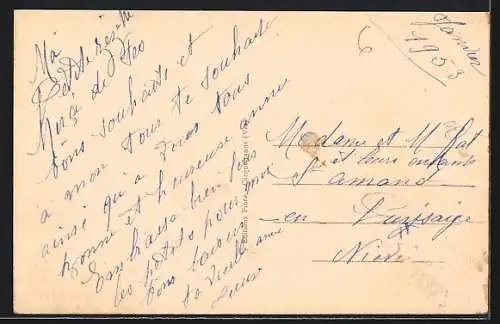 Ma
Petite
Merci de tes
bons souhaits et
à mon tour te souhaite
ainsi qu'à vous tous
bonne et heureuse année
Embrasse bien les
les petits pour moi
bons baisers
ta vieille amie
Janvier
1953
6
Madame et Mr
et leurs enfants
St amand
en Puisaye
Nièvre